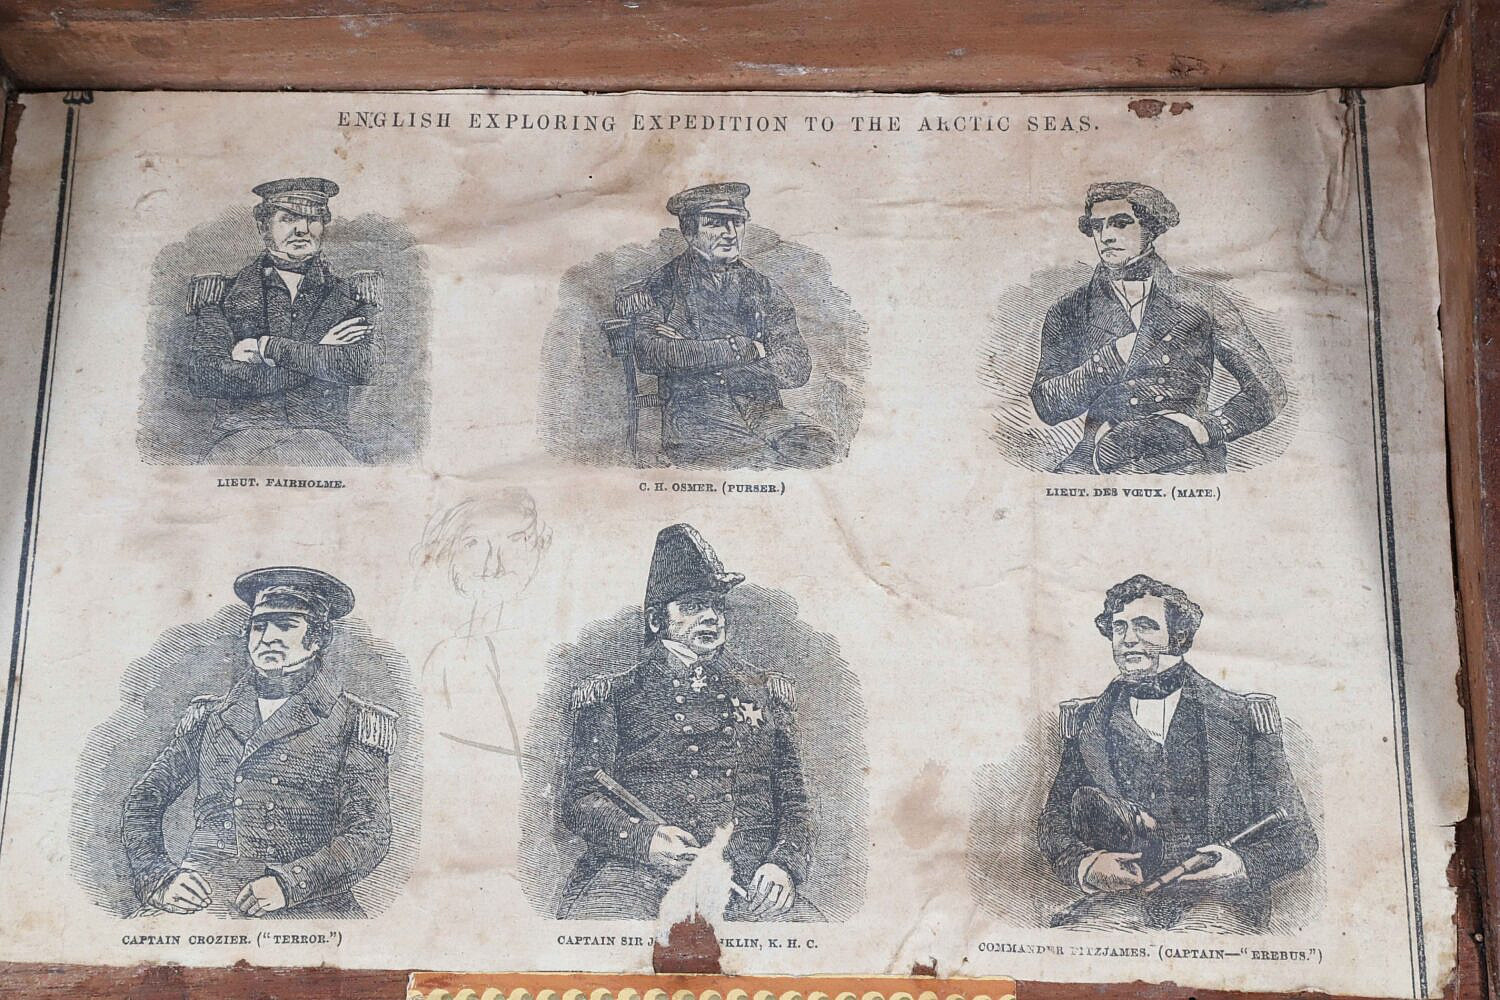 ENGLISH EXPLORING EXPEDITION TO THE ARCTIC SEAS.
LIEUT. FAIRHOLME.
C. H. OSMER. (PURSER.)
LIEUT. DES VŒUX. (MATE.)
CAPTAIN CROZIER. ("TERROR.")
CAPTAIN SIR J NKLIN, K. H. C.
COMMANDER FITZJAMES. (CAPTAIN—"EREBUS.")